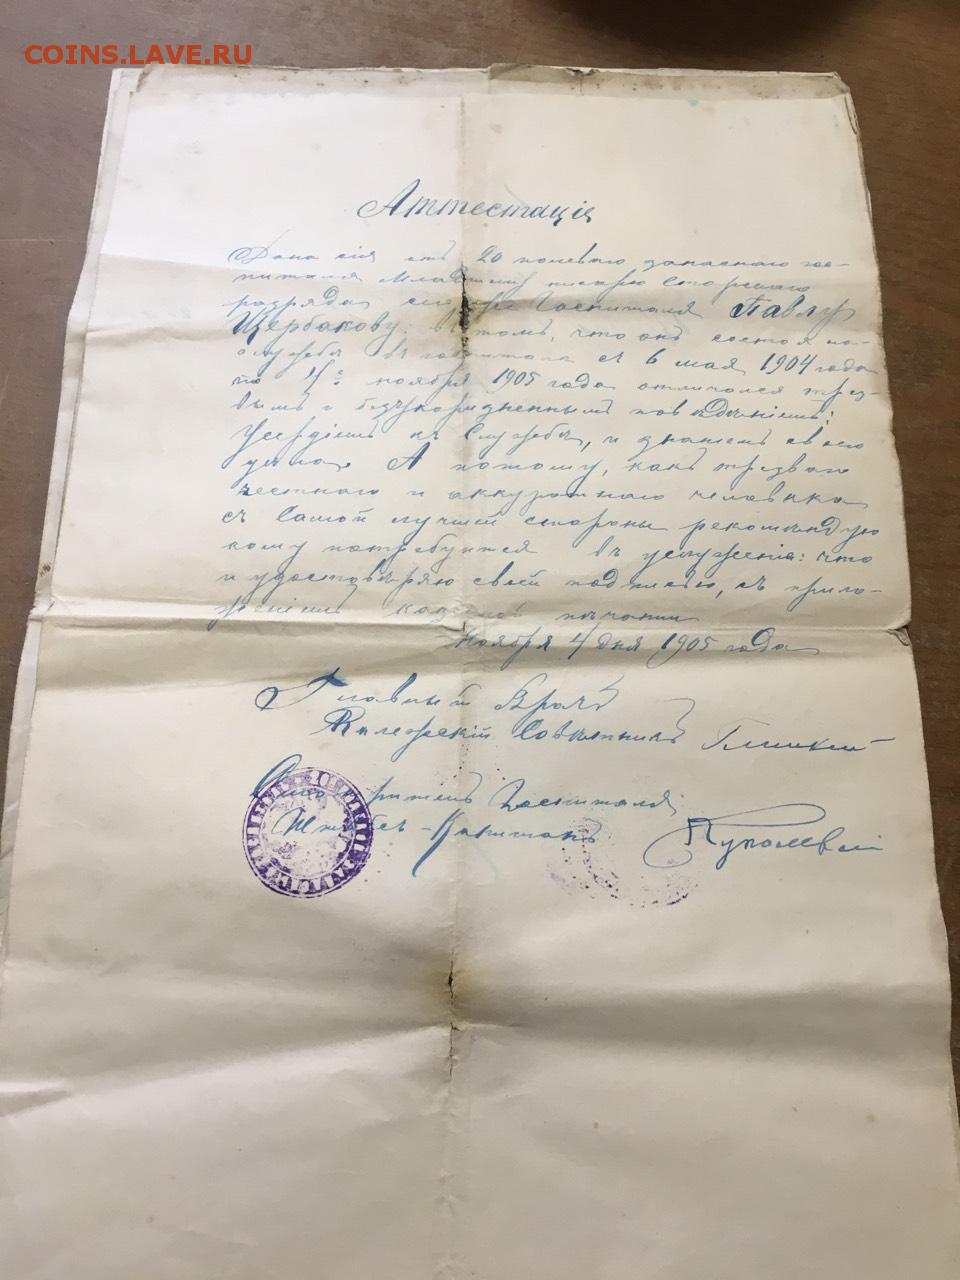 COINS.LAVE.RU
Аттестація
Дана сія отъ 20 полеваго запаснаго гос-
питаля Младшему писарю старшаго
разряда сего госпиталя Павлу
Щербакову въ томъ, что онъ состоя на
службѣ въ госпиталѣ съ 6 мая 1904 года
по 4е ноября 1905 года отличался трез-
вымъ и безукоризненнымъ поведѣніемъ;
Усердіемъ къ Службѣ, и знаніемъ своего
дѣла. А потому, какъ трезваго
честнаго и аккуратнаго человѣка
съ Самой лучшей стороны рекомендую
кому потребуется въ услуженіе: что
и удостовѣряю своей подписью, съ прило-
женіемъ казенной печати
Ноября 4 дня 1905 года
Главный Врачъ
Колежскій Совѣтникъ
Смотритель Госпиталя
Штабсъ-Капитанъ